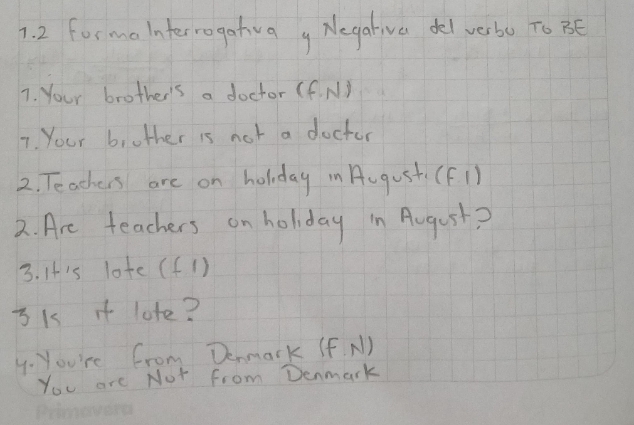 1.2 Forma Interrogativa y Negativa del verbo TO BE
1. Your brother's a doctor (f.N)
1. Your brother is not a doctor
2. Teachers are on holiday in August. (F.I)
2. Are teachers on holiday in August?
3. It's late (f I)
3 Is it late?
4. You're from Denmark (f.N)
You are Not from Denmark
Primavera